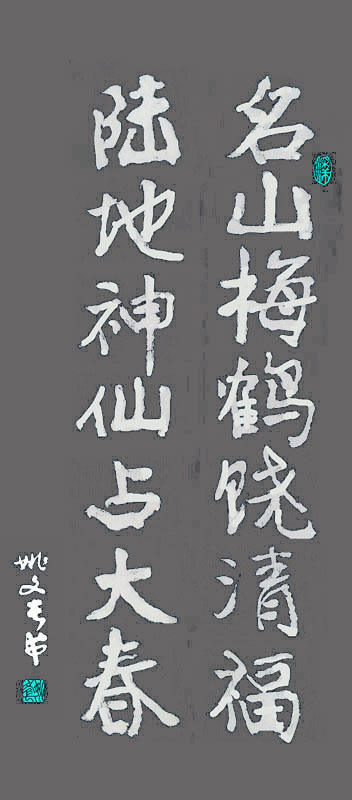 名山梅鹤饶清福
陆地神仙占大春
姚文青